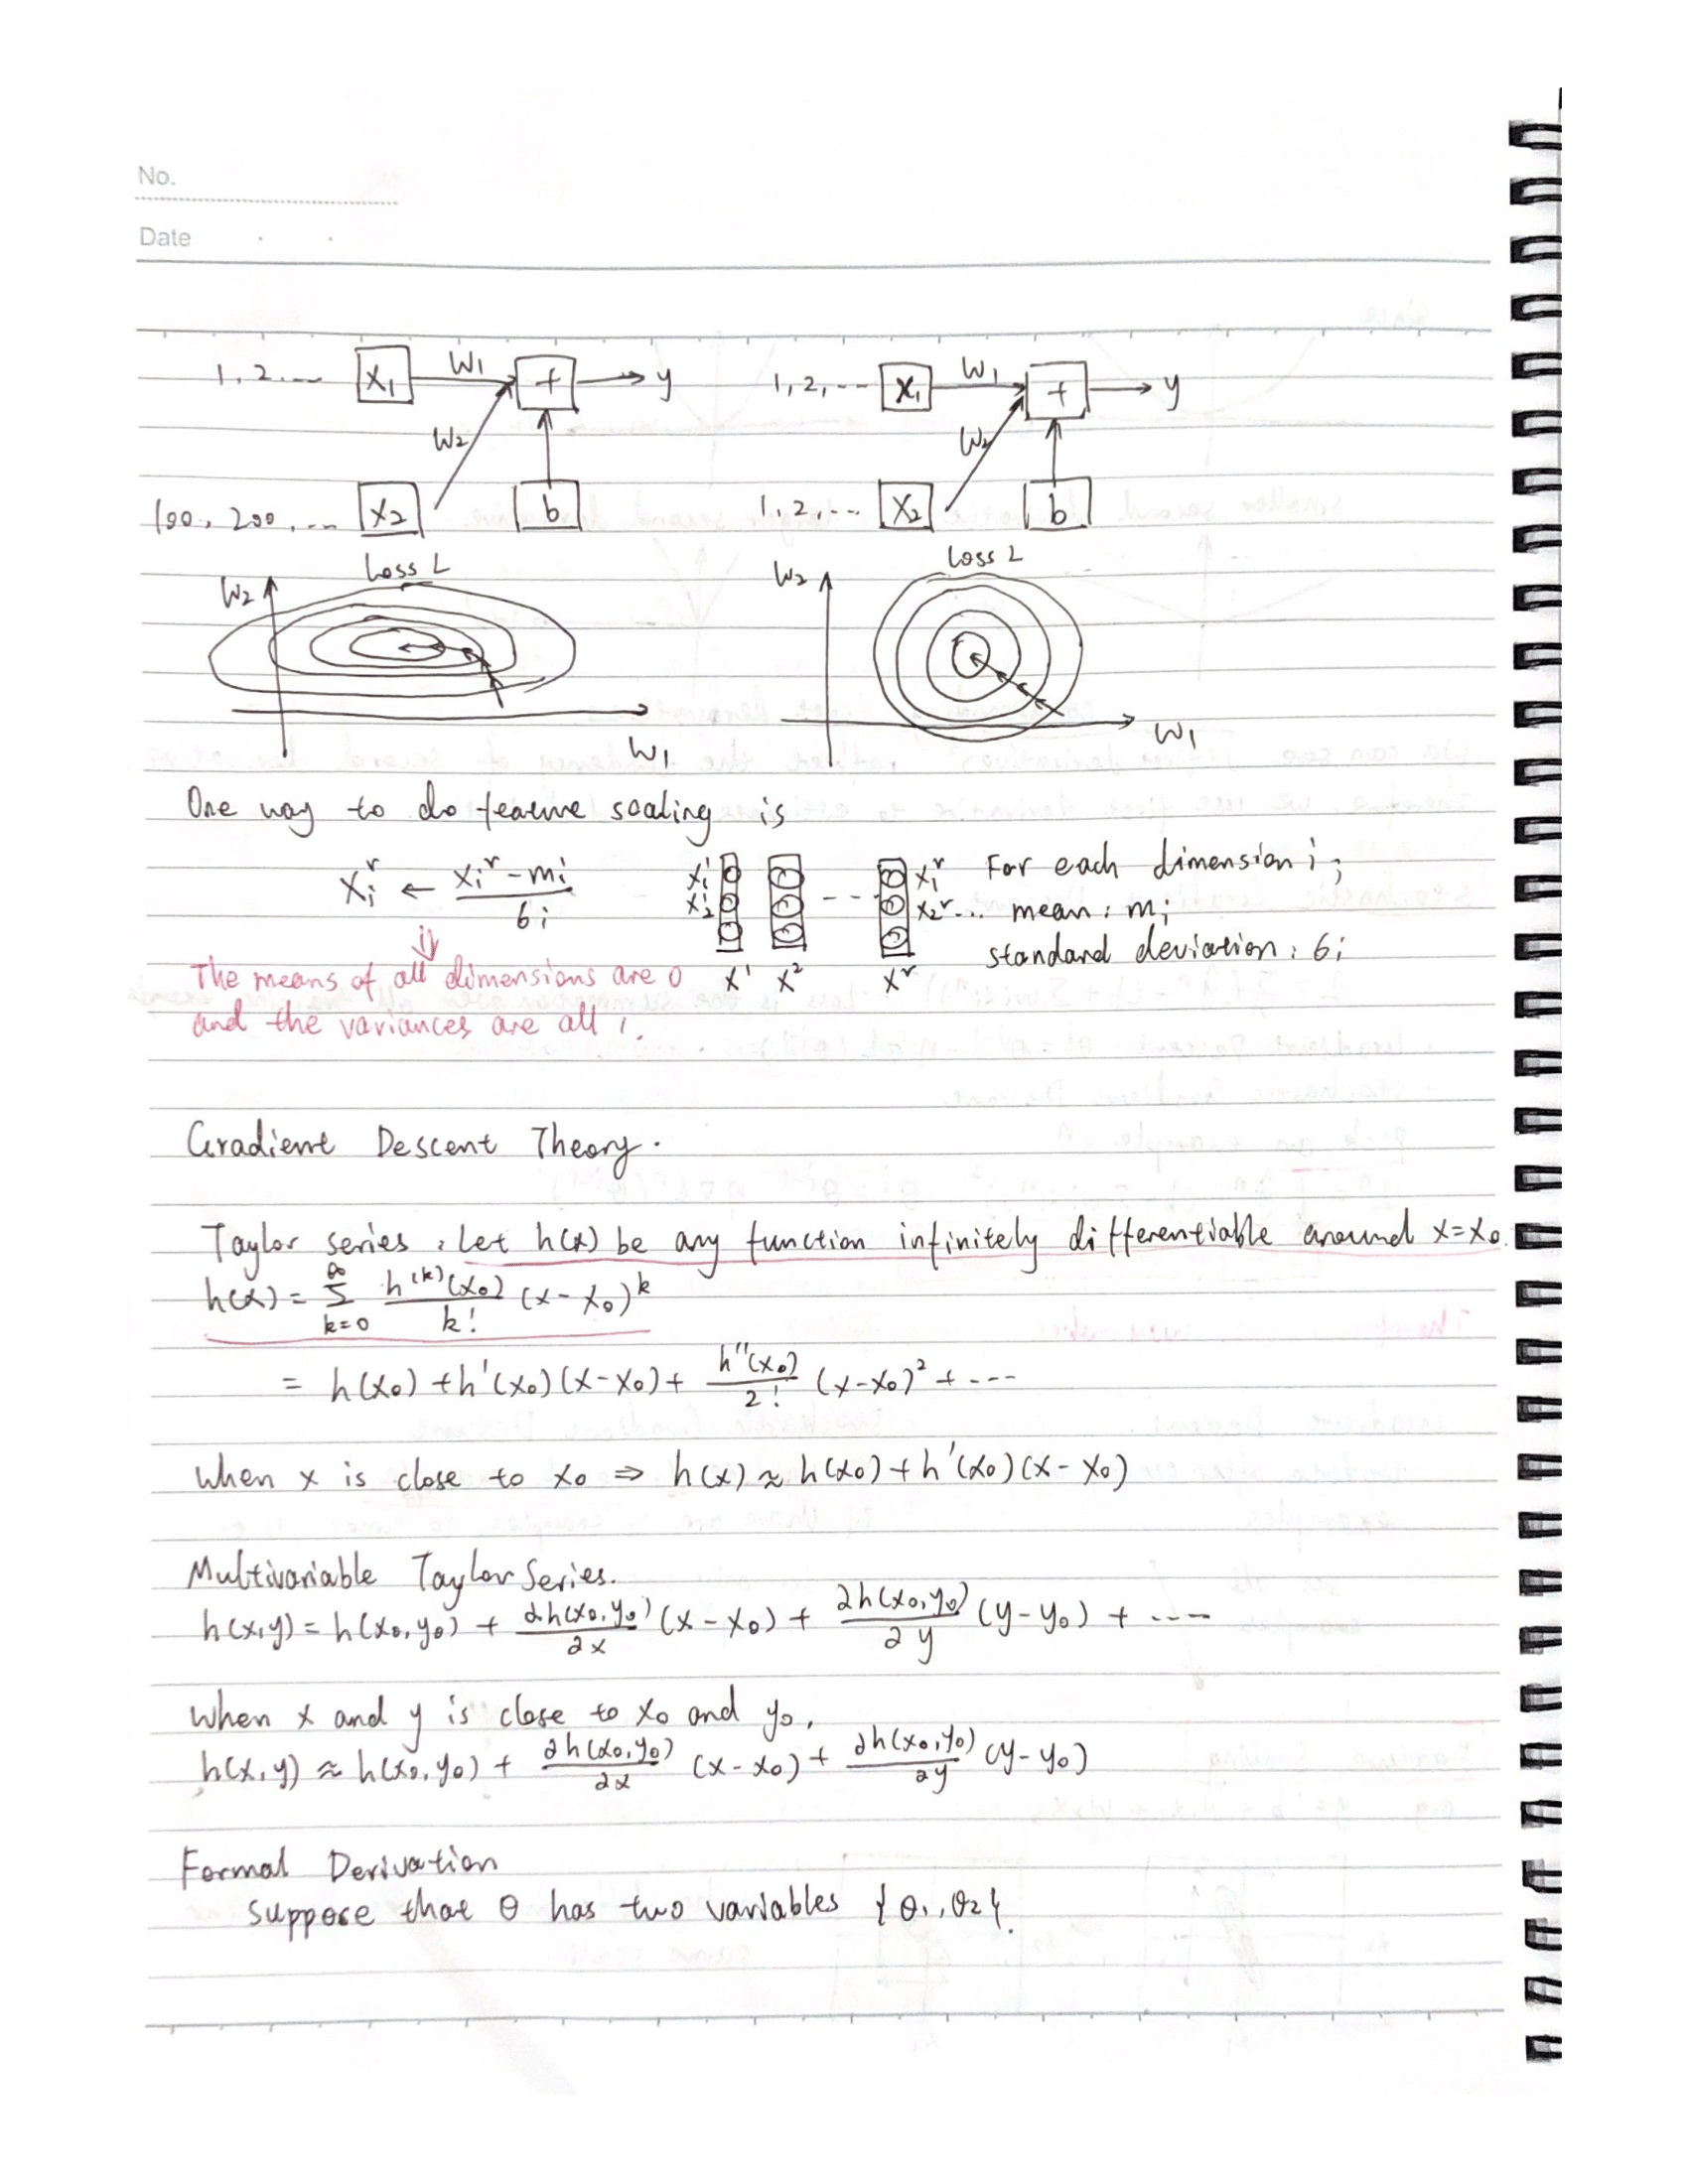 No.
Date
1, 2, ... x₁ W₁ + → y 1, 2, ... x₁ W₁ + → y
W₂ W₂
100, 200, ... x₂ b 1, 2, ... x₂ b
Loss L Loss L
W₂ W₂
W₁ W₁
One way to do feature scaling is
xᵢʳ ← (xᵢʳ - mᵢ) / 6ᵢ x₁¹ x₂¹ ... x₁ʳ x₂ʳ... For each dimension i;
mean: mᵢ
standard deviation: 6ᵢ
⇓
The means of all dimensions are 0 x¹ x² xʳ
and the variances are all 1.
Gradient Descent Theory.
Taylor series: Let h(x) be any function infinitely differentiable around x=x₀.
h(x) = ∑_{k=0}^{∞} h⁽ᵏ⁾(x₀)/k! (x-x₀)ᵏ
= h(x₀) + h'(x₀)(x-x₀) + h''(x₀)/2! (x-x₀)² + ...
When x is close to x₀ ⇒ h(x) ≈ h(x₀) + h'(x₀)(x-x₀)
Multivariable Taylor Series.
h(x,y) = h(x₀,y₀) + ∂h(x₀,y₀)/∂x (x-x₀) + ∂h(x₀,y₀)/∂y (y-y₀) + ....
When x and y is close to x₀ and y₀,
h(x,y) ≈ h(x₀,y₀) + ∂h(x₀,y₀)/∂x (x-x₀) + ∂h(x₀,y₀)/∂y (y-y₀)
Formal Derivation
Suppose that θ has two variables {θ₁,θ₂}.